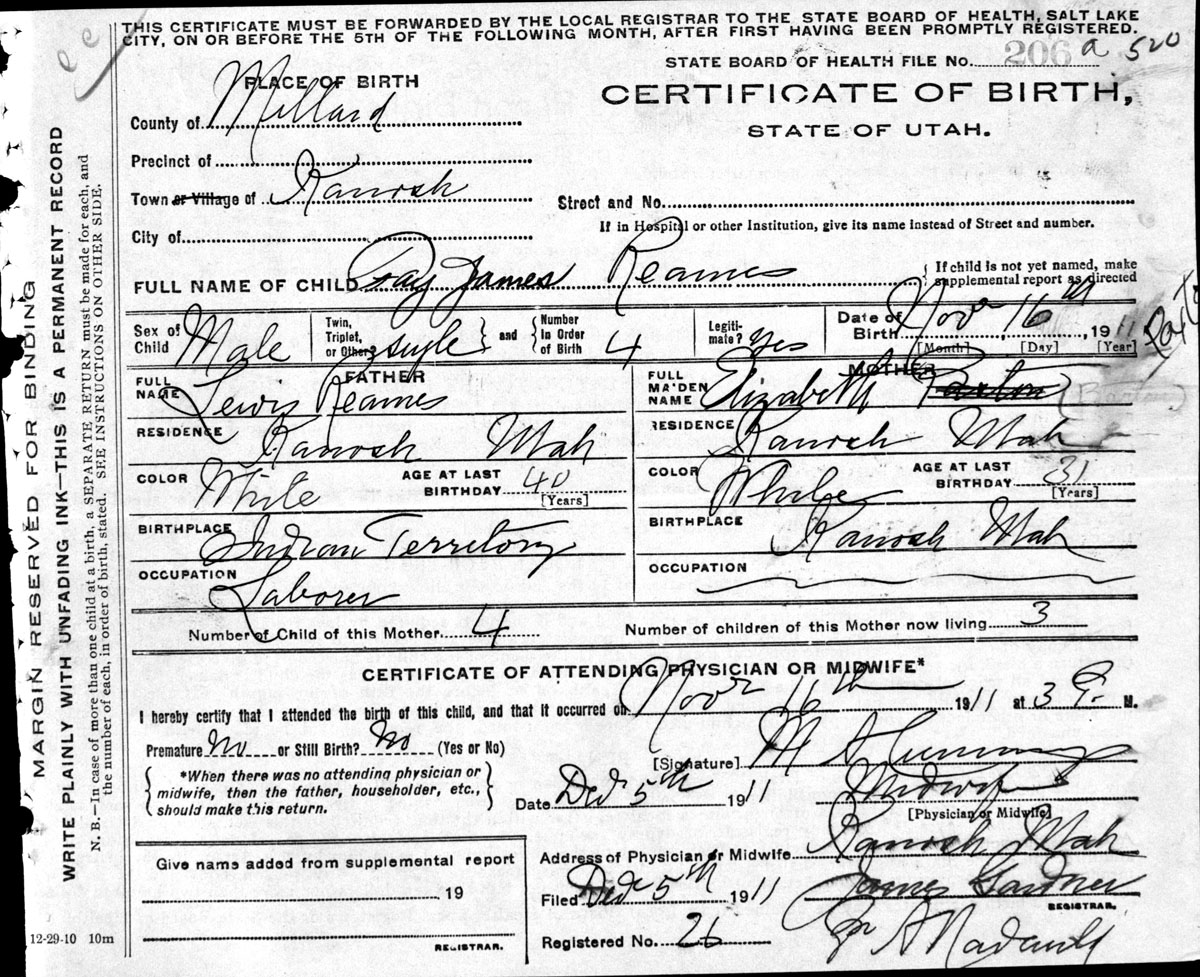 THIS CERTIFICATE MUST BE FORWARDED BY THE LOCAL REGISTRAR TO THE STATE BOARD OF HEALTH, SALT LAKE
CITY, ON OR BEFORE THE 5TH OF THE FOLLOWING MONTH, AFTER FIRST HAVING BEEN PROMPTLY REGISTERED.
STATE BOARD OF HEALTH FILE No. 206 a 520
PLACE OF BIRTH
CERTIFICATE OF BIRTH,
STATE OF UTAH.
County of Millard
Precinct of
Town or Village of Kanosh
Street and No.
If in Hospital or other Institution, give its name instead of Street and number.
City of
FULL NAME OF CHILD Ray James Reames
{ If child is not yet named, make supplemental report as directed
Sex of Child Male Twin, Triplet, or Other? single and Number in Order of Birth 4 Legiti-mate? Yes Date of Birth Nov 16th, 1911
[Month] [Day] [Year]
FATHER
FULL NAME Lewis Reames
RESIDENCE Kanosh Utah
COLOR White AGE AT LAST BIRTHDAY 40 [Years]
BIRTHPLACE Indian Territory
OCCUPATION Laborer
MOTHER
FULL MAIDEN NAME Elizabeth Paxton (Barton)
RESIDENCE Kanosh Utah
COLOR White AGE AT LAST BIRTHDAY 31 [Years]
BIRTHPLACE Kanosh Utah
OCCUPATION
Number of Child of this Mother 4 Number of children of this Mother now living 3
CERTIFICATE OF ATTENDING PHYSICIAN OR MIDWIFE*
I hereby certify that I attended the birth of this child, and that it occurred on Nov 16th 1911 at 3 P. M.
Premature No or Still Birth? No (Yes or No)
[Signature] M A
{ *When there was no attending physician or
midwife, then the father, householder, etc.,
should make this return. }
Date Dec 5th 1911 Midwife
[Physician or Midwife]
Address of Physician or Midwife Kanosh Utah
Filed Dec 5th 1911 James Gardner
REGISTRAR.
Registered No. 26
Give name added from supplemental report
, 19
REGISTRAR.
12-29-10 10m
MARGIN RESERVED FOR BINDING
WRITE PLAINLY WITH UNFADING INK—THIS IS A PERMANENT RECORD
N. B.—In case of more than one child at a birth, a SEPARATE RETURN must be made for each, and
the number of each, in order of birth, stated. SEE INSTRUCTIONS ON OTHER SIDE.